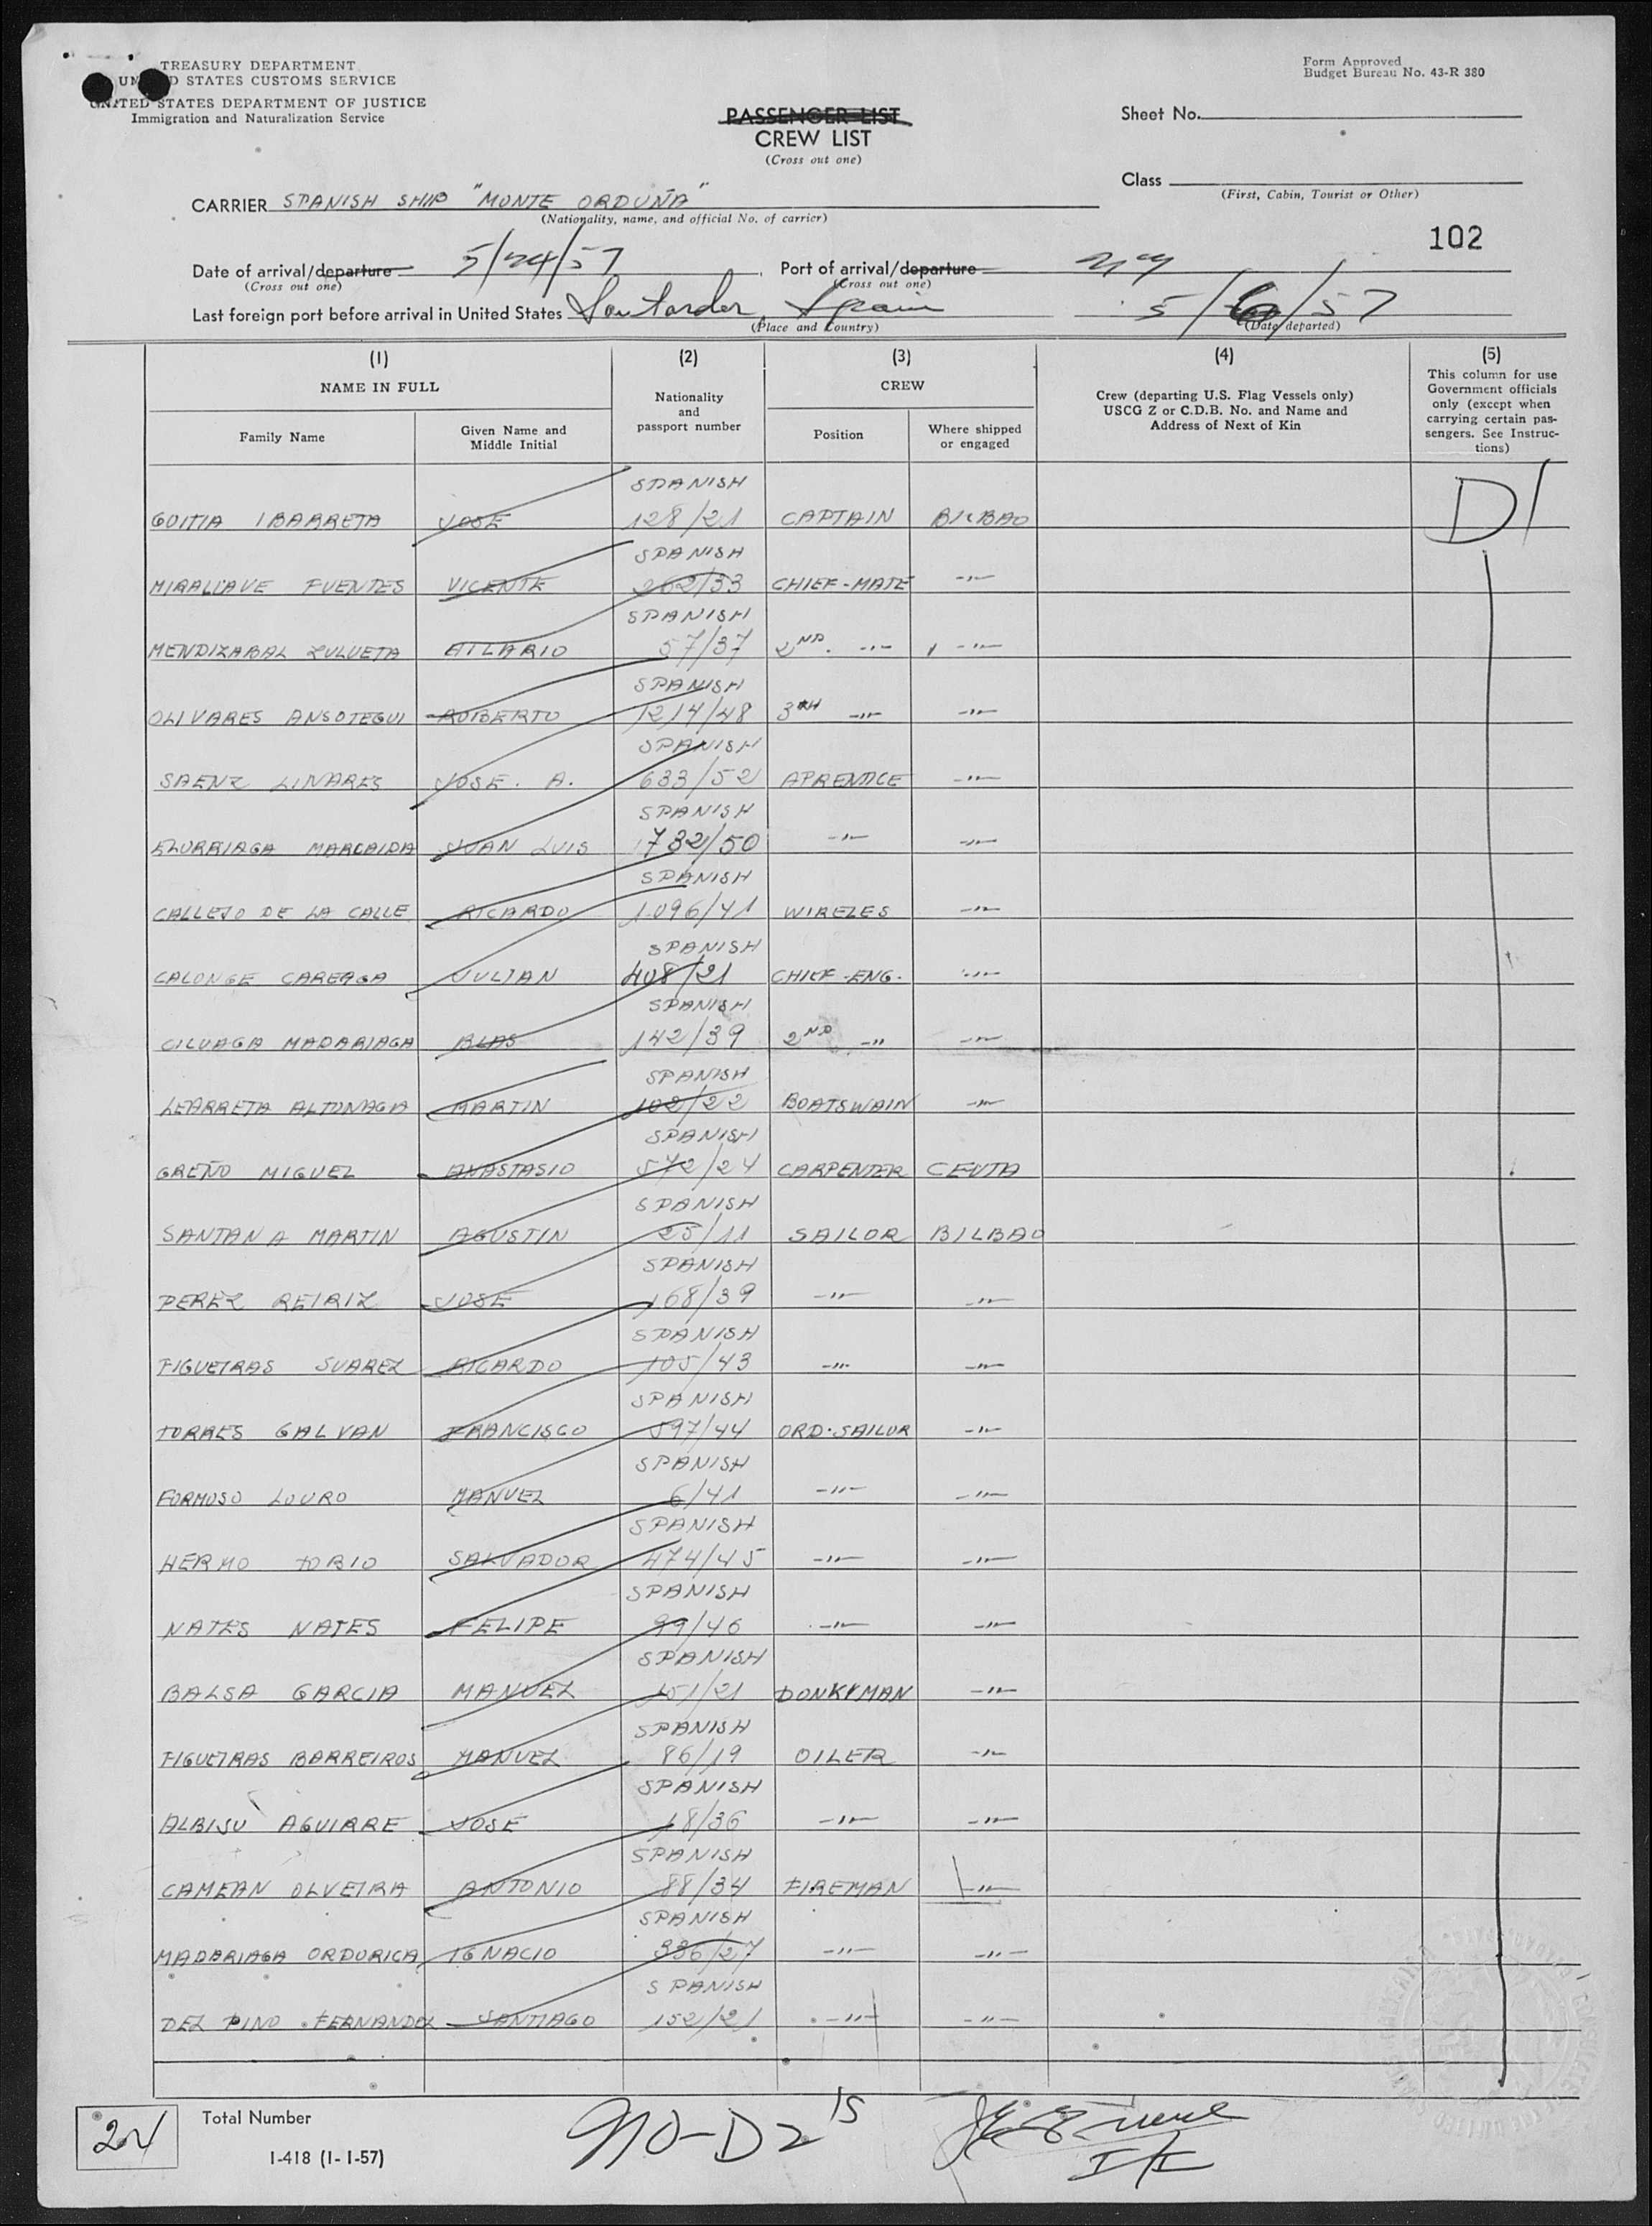 TREASURY DEPARTMENT
UNITED STATES CUSTOMS SERVICE
UNITED STATES DEPARTMENT OF JUSTICE
Immigration and Naturalization Service
Form Approved
Budget Bureau No. 43-R 380
PASSENGER LIST
CREW LIST
(Cross out one)
Sheet No.
Class
(First, Cabin, Tourist or Other)
CARRIER SPANISH SHIP "MONTE ORDUÑA"
(Nationality, name, and official No. of carrier)
102
Date of arrival/departure 5/24/57 Port of arrival/departure NY
(Cross out one) (Cross out one)
Last foreign port before arrival in United States Santander, Spain 5/6/57
(Place and Country) (Date departed)
(1) (2) (3) (4) (5)
NAME IN FULL
Family Name
Given Name and Middle Initial
Nationality and passport number
CREW
Position
Where shipped or engaged
Crew (departing U.S. Flag Vessels only) USCG Z or C.D.B. No. and Name and Address of Next of Kin
This column for use Government officials only (except when carrying certain passengers. See Instructions)
SPANISH
GOITIA IBARRETA JOSE 128/21 CAPTAIN BILBAO D1
SPANISH
MIRALLAVE FUENTES VICENTE 262/53 CHIEF-MATE -"-
SPANISH
MENDIZABAL ZULUETA ATLARIO 57/37 2ND. -"- -"-
SPANISH
OLIVARES ANSOTEGUI ROBERTO 1214/48 3TH -"- -"-
SPANISH
SAENZ LINARES JOSE. A. 633/52 APRENTICE -"-
SPANISH
ELURRIAGA MARCAIDA JUAN LUIS 732/50 -"- -"-
SPANISH
CALLEJO DE LA CALLE RICARDO 1096/41 WIRELES -"-
SPANISH
CALONGE CAREAGA JULIAN 408/21 CHIEF-ENG. -"-
SPANISH
OILUAGA MADARIAGA BLAS 142/39 2ND -" -"-
SPANISH
LEARRETA ALTONAGA MARTIN 102/22 BOATSWAIN -"-
SPANISH
GREÑO MIGUEL ANASTASIO 572/24 CARPENTER CEUTA
SPANISH
SANTANA MARTIN AGUSTIN 25/11 SAILOR BILBAO
SPANISH
PEREZ REIRIZ JOSE 168/39 -"- -"-
SPANISH
FIGUEIRAS SUAREZ RICARDO 105/43 -"- -"-
SPANISH
TORRES GALVAN FRANCISCO 597/44 ORD. SAILOR -"-
SPANISH
FORMOSO LOURO MANUEL 6/41 -"- -"-
SPANISH
HERMO TOBIO SALVADOR 474/45 -"- -"-
SPANISH
NATES NATES FELIPE 99/46 -"- -"-
SPANISH
BALSA GARCIA MANUEL 151/21 DONKYMAN -"-
SPANISH
FIGUEIRAS BARREIROS MANUEL 86/19 OILER -"-
SPANISH
ALBISU AGUIRRE JOSE 18/36 -"- -"-
SPANISH
CAMEAN OLVEIRA ANTONIO 88/34 FIREMAN -"-
SPANISH
MADARIAGA ORDORICA IGNACIO 336/27 -"- -"-
SPANISH
DEL PINO FERNANDEZ SANTIAGO 152/21 -"- -"-
24 Total Number
I-418 (1-1-57)
NO-D2's